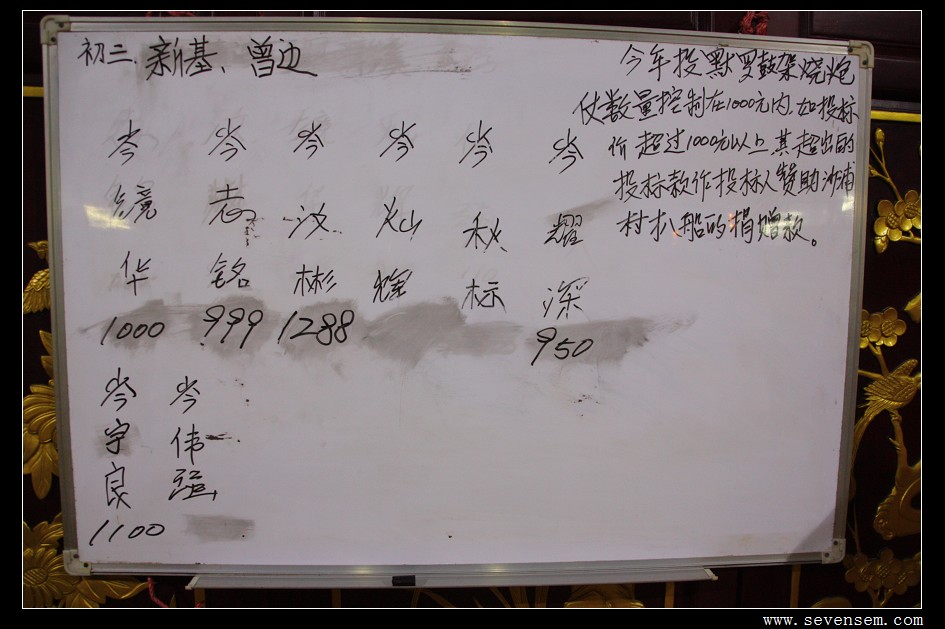 初二. 新基、曾边
岑镜华
1000
岑志铭
999
岑汝彬
1288
岑灿辉
岑秋标
岑耀深
950
岑宇良
1100
岑伟强
今年投默罗鼓架烧炮
仗数量控制在1000元内.如投标
价超过1000元以上.其超出的
投标款作投标人赞助沙浦
村扒船的捐赠款。
www.sevensem.com